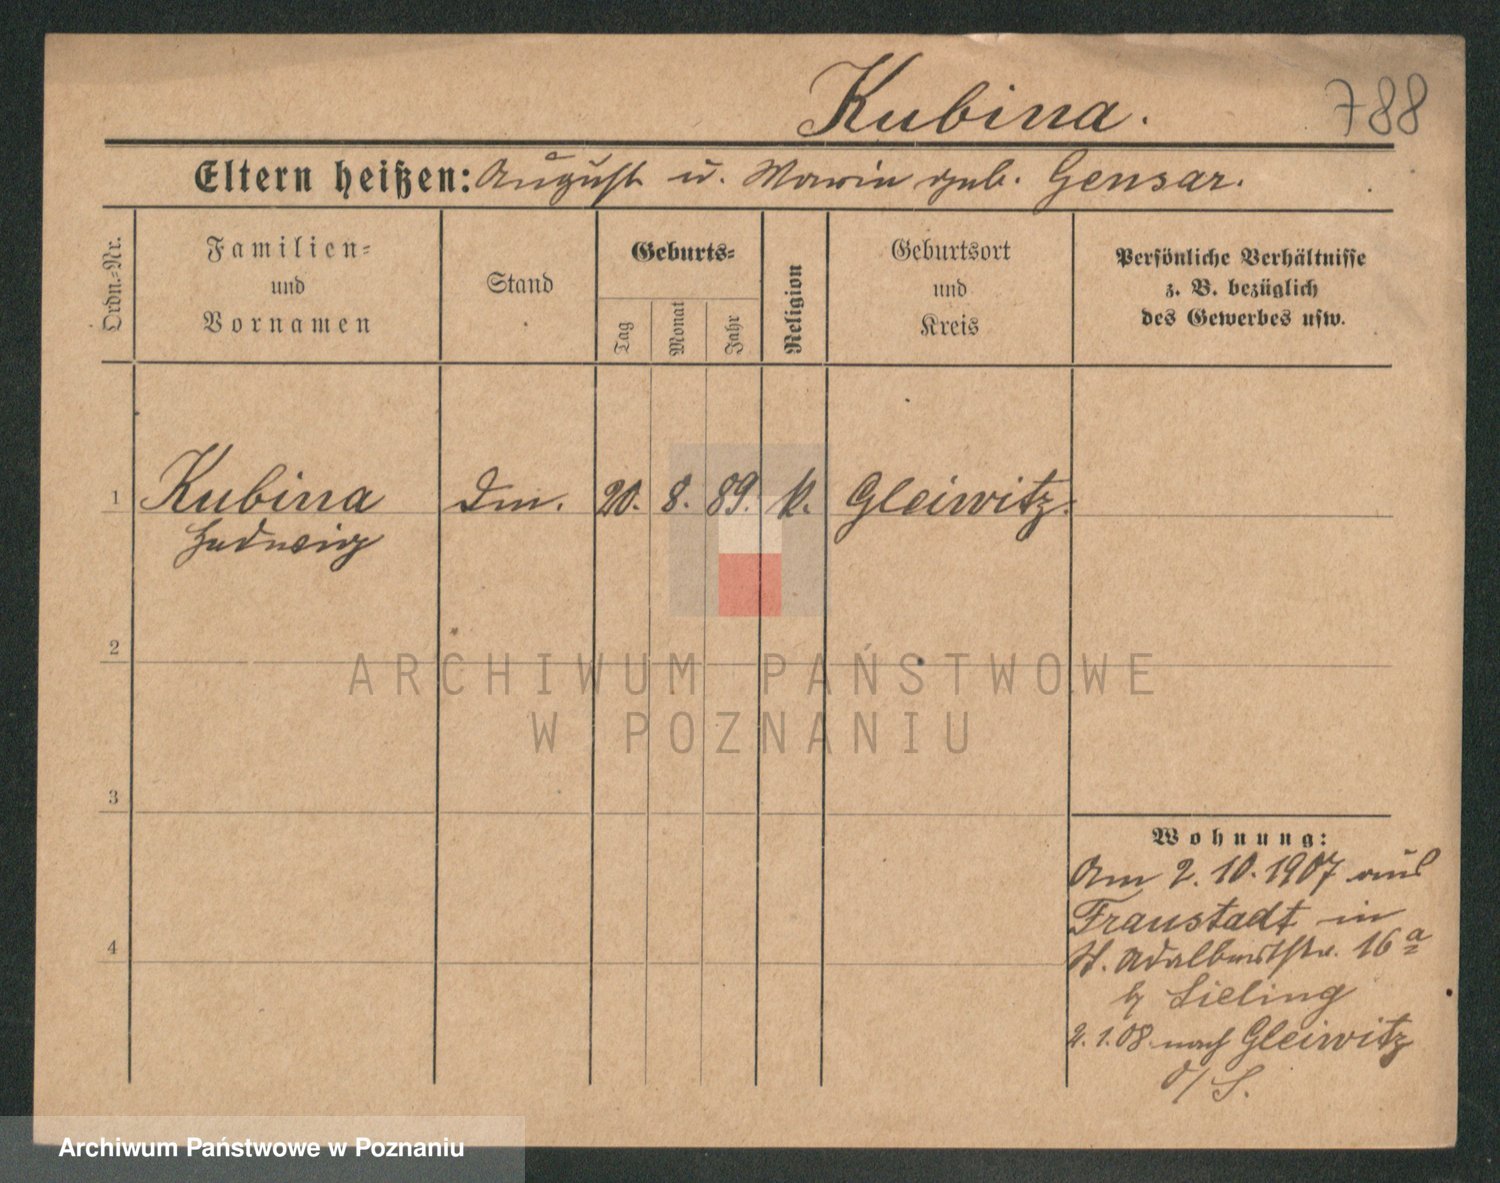 Kubina.
788
Eltern heißen: August u. Maria geb. Gensar.
Ordn.-Nr.
Familien-
und
Vornamen
Stand
Geburts-
Tag
Monat
Jahr
Religion
Geburtsort
und
Kreis
Persönliche Verhältnisse
z. B. bezüglich
des Gewerbes usw.
1 Kubina Dm. 20. 8. 89. k. Gleiwitz.
Hedwig
2
ARCHIWUM PAŃSTWOWE
W POZNANIU
3
Wohnung:
Am 2.10.1907 aus
Fraustadt in
St. Adalbertstr. 16a
4
b/ Lieling
2.1.08 nach Gleiwitz
O/S.
Archiwum Państwowe w Poznaniu